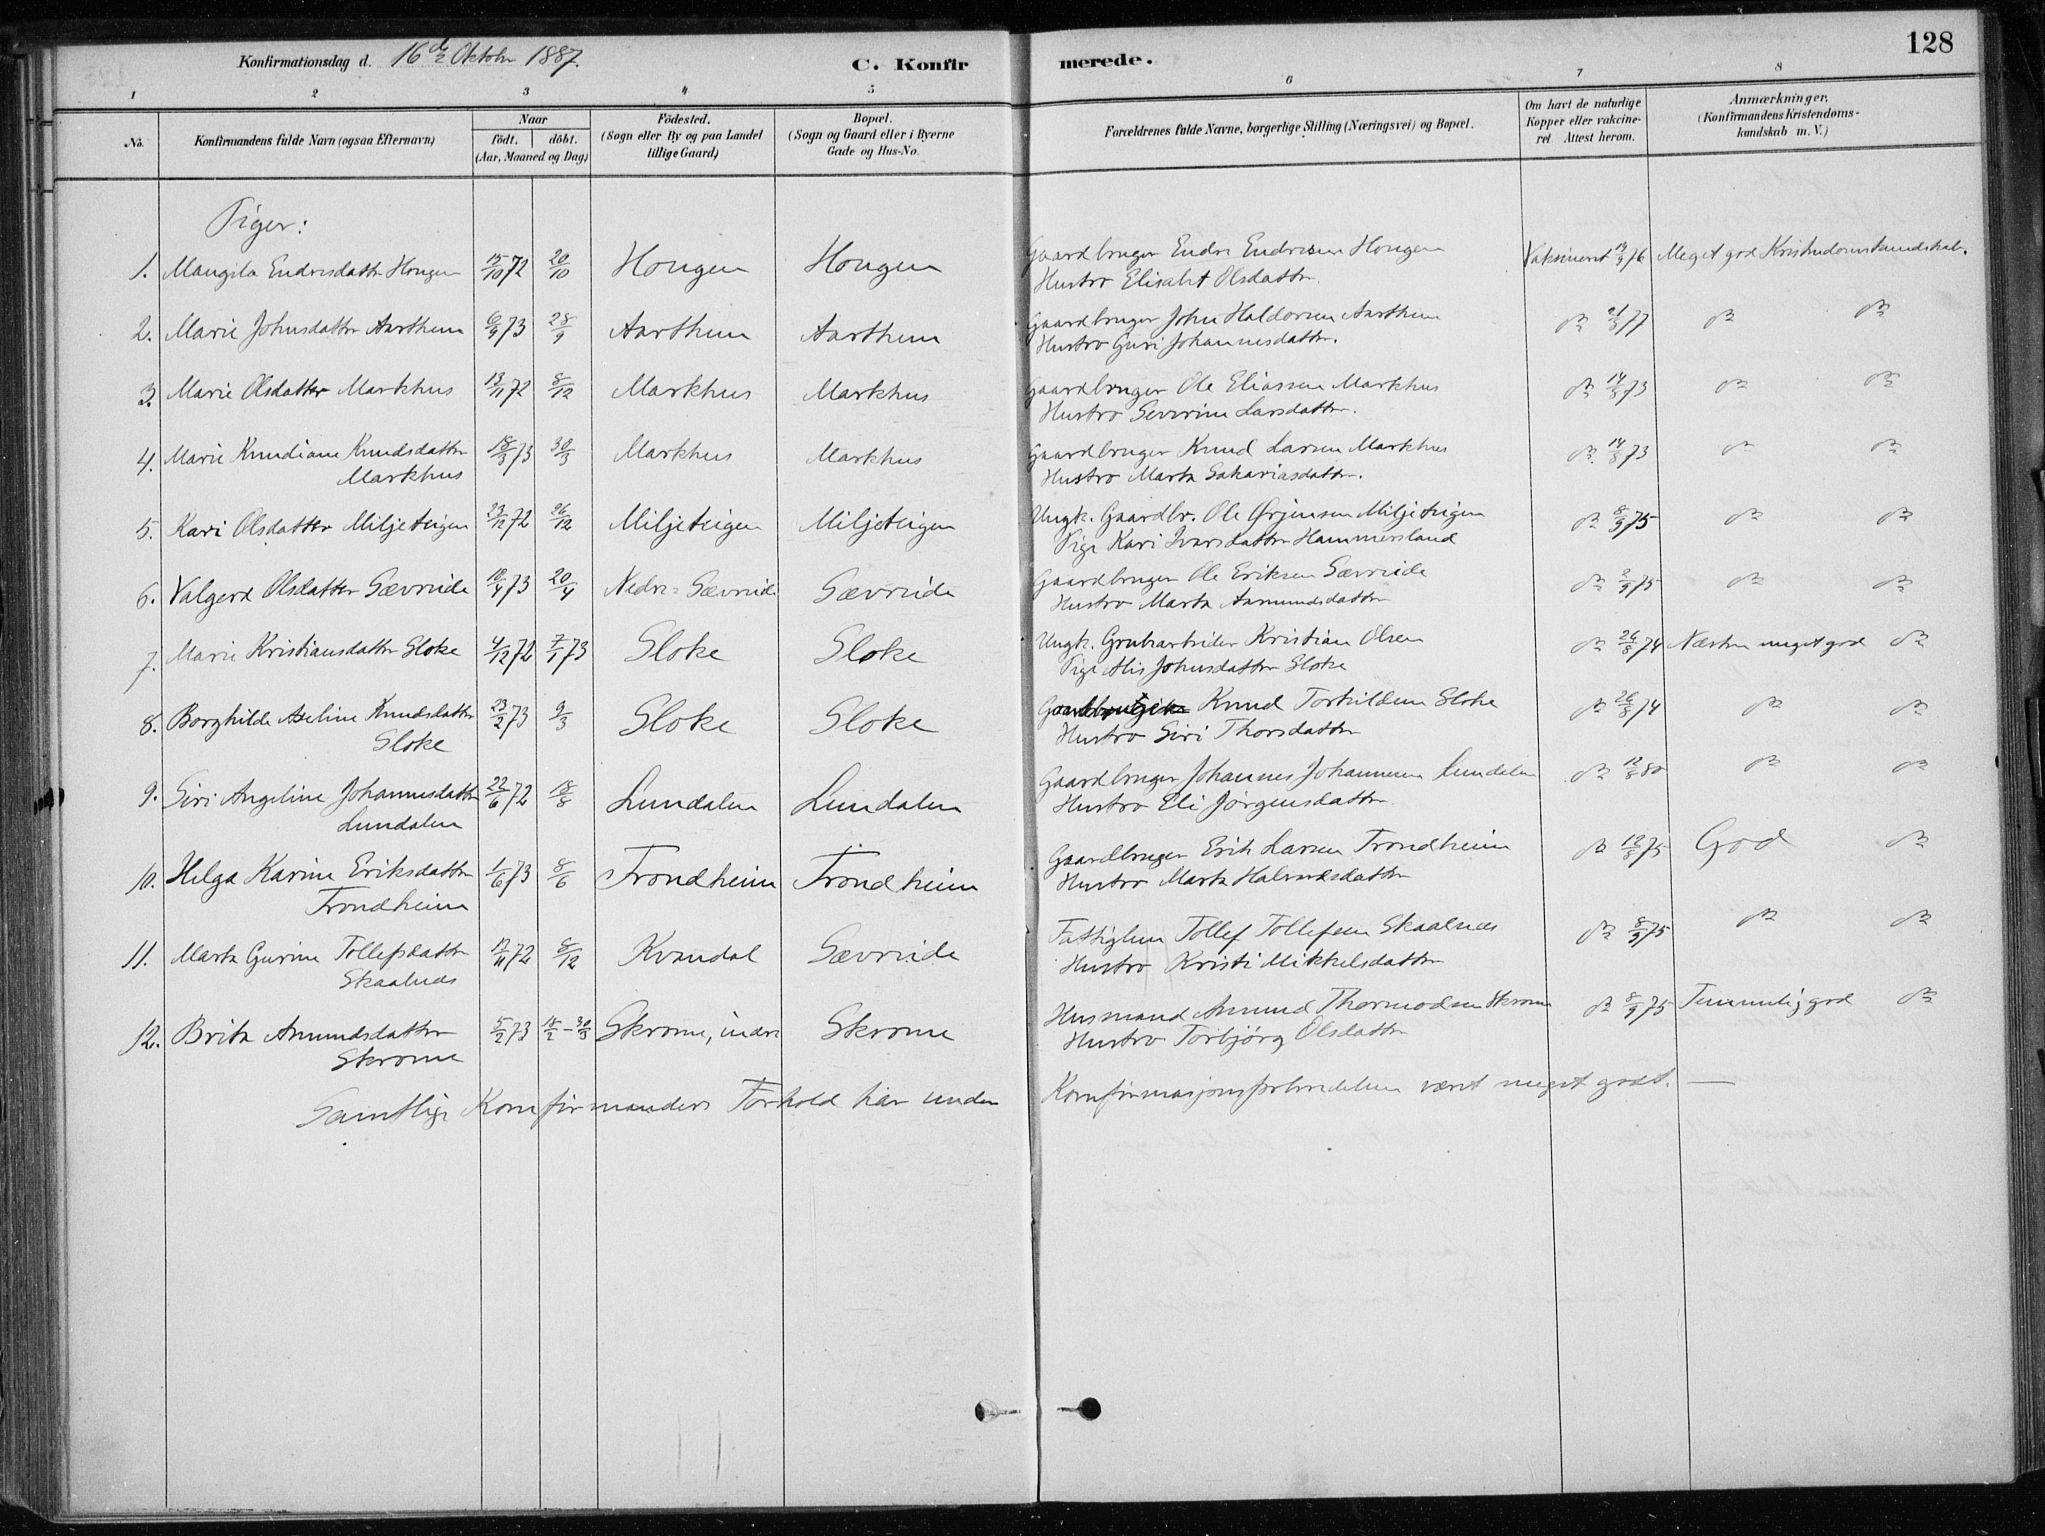 128
Konfirmationsdag d. 16de Oktobr 1887.
C. Konfirmerede.
1 2 3 4 5 6 7 8
No.
Konfirmandens fulde Navn (ogsaa Efternavn)
Naar
födt. döbt.
(Aar, Maaned og Dag)
Födested.
(Sogn eller By og paa Landet
tillige Gaard)
Bopæl.
(Sogn og Gaard eller i Byerne
Gade og Hus-No.
Forældrenes fulde Navne, borgerlige Stilling (Næringsvei) og Bopæl.
Om havt de naturlige
Kopper eller vakcine-
ret Attest herom.
Anmærkninger.
(Konfirmandens Kristendoms-
kundskab m. V.)
Piger:
1. Maugila Endresdatter Hougen 15/10 72 20/10 Hougen Hougen Gaardbruger Endre Endresen Hougen Vaksineret 14/9 76 Meget god Kristendomskundskab.
Hustro Elisabet Olsdattr.
2. Marie Johnsdattr Aarthun 6/9 73 28/9 Aarthun Aarthun Gaardbruger John Haldorsen Aarthun do 21/3 77 do do
Hustro Guri Johannesdattr.
3. Marie Olsdatter Markhus 13/11 72 8/12 Markhus Markhus Gaardbruger Ole Eliassen Markhus do 14/8 73 do do
Hustro Severine Larsdattr.
4. Marie Knudiane Knudsdattr 18/3 73 30/3 Markhus Markhus Gaardbruger Knud Larsen Markhus do 14/8 73 do do
Markhus Hustro Marta Sakariasdattr.
5. Kari Olsdatter Miljeteigen 23/12 72 26/12 Miljeteigen Miljeteigen Ungk. Gaardbr. Ole Ørjensen Miljeteigen do 8/9 75 do do
Pige Kari Ivarsdattr Hammersland
6. Valgerd Olsdatter Sævreide 10/4 73 20/4 Nedre-Sævreide Sævreide Gaardbruger Ole Eriksen Sævreide do 2/9 75 do do
Hustro Marta Aamundsdattr
7. Marie Kristiansdattr Sloke 4/12 72 7/1 73 Sloke Sloke Ungk. Grubearbeider Kristian Olsen do 26/8 74 Næsten meget god do
Pige Alis Johnsdattr Sloke
8. Borghilde Axeline Knudsdattr 23/2 73 9/3 Sloke Sloke Gaardbruger Knud Torkildsen Sloke do 26/8 74 do do
Sloke Hustro Siri Thorsdattr
9. Siri Angeline Johannesdattr 22/6 72 18/8 Lundalen Lundalen Gaardbruger Johannes Johannesen Lundalen do 12/8 80 do do
Lundalen Hustro Eli Jørgensdattr.
10. Helga Karine Eriksdattr 1/6 73 8/6 Trondheim Trondheim Gaardbruger Erik Larsen Trondheim do 12/8 75 God do
Trondheim Hustro Marta Halvardsdattr
11. Marta Gurine Tollefsdattr 17/11 72 8/12 Kvandal Sævreide Fattiglem Tollef Tollefsen Skaalnes do 8/9 75 do do
Skaalnes Hustro Kristi Mikkelsdattr
12. Brita Amundsdattr 5/2 73 15/2 - 30/3 Skromme, indre Skromme Husmand Amund Thormodsen Skromme do 8/9 75 Temmelig god do
Skromme Hustro Torbjørg Olsdattr
Samtlige Konfirmanders Forhold har under Konfirmasjonsforberedelsen været meget godt.